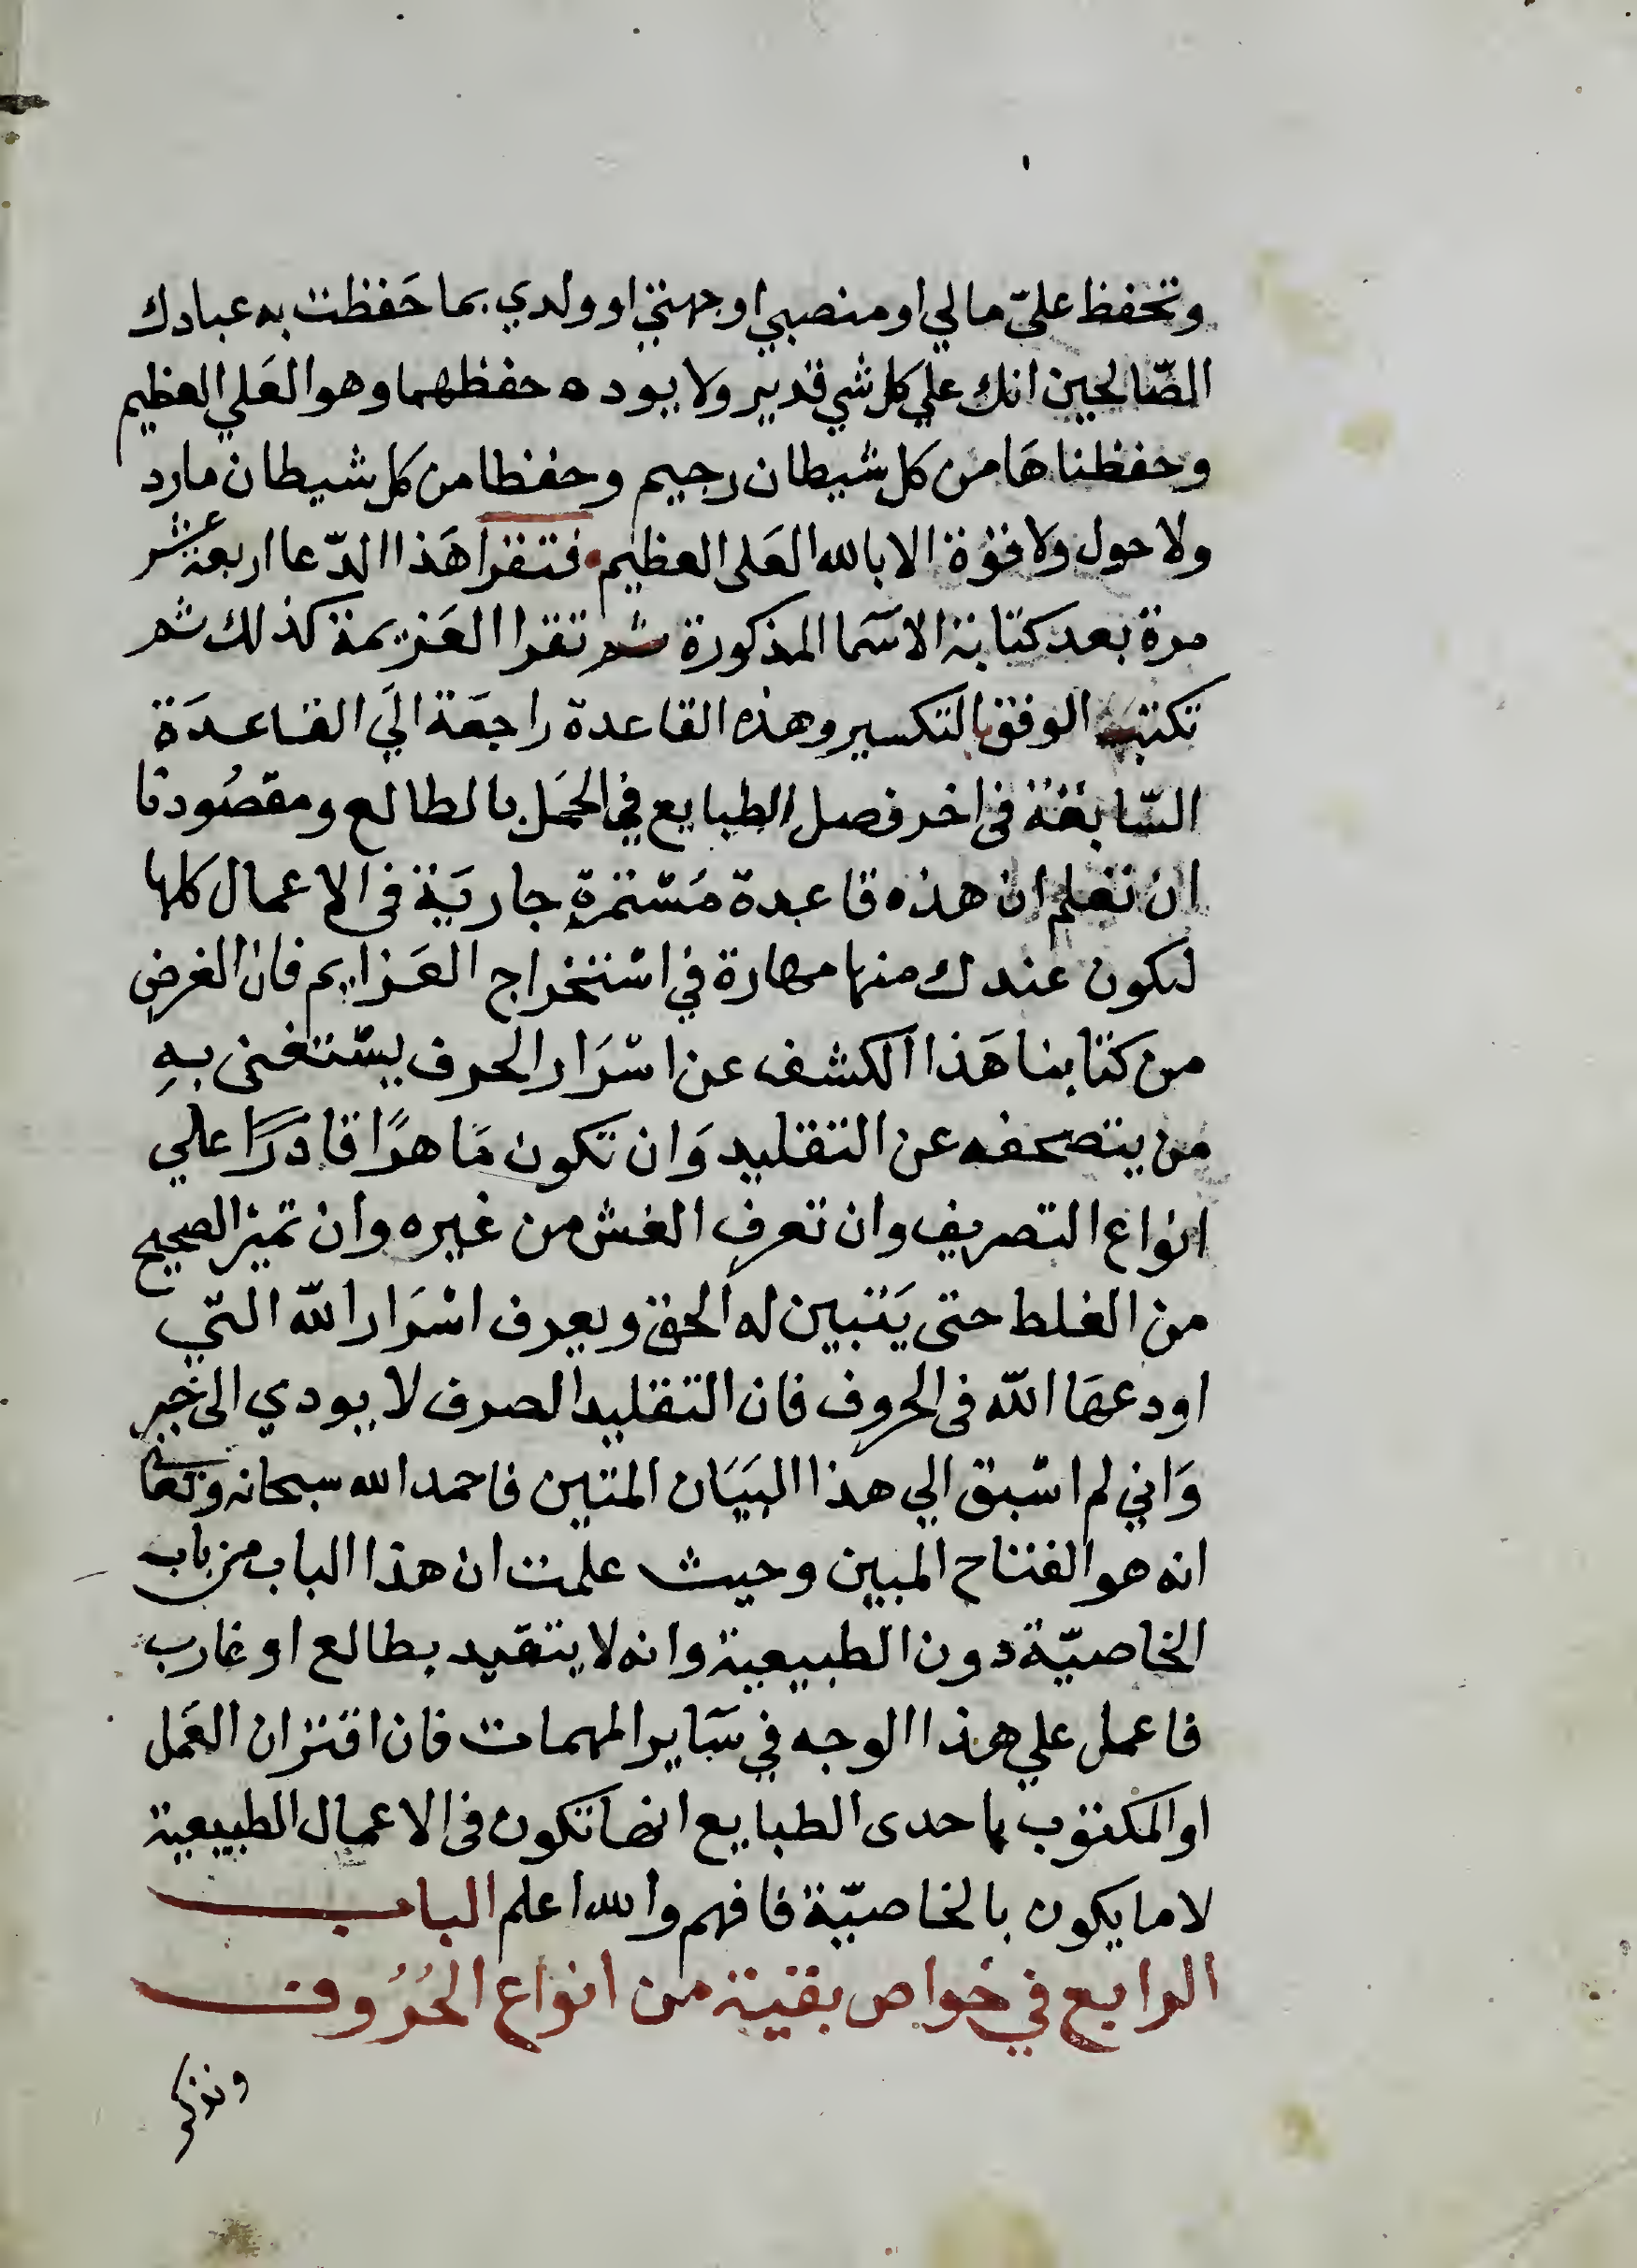 وتحفظ عليّ مالي او منصبي او جهتي او ولدي بما حَفظت به عبادك
الصّالحين انك علي كل شي قدير ولا يوده حفظهما وهو العَلي العظيم
وحفظناهَا من كل شيطان رجيم وحفظا من كل شيطان مارد
ولا حول ولا قوة الا بالله العَلى العظيم فتقرا هَذا الدّعا اربعة عشر
مرة بعد كتابة الاسَما المذكورة ثم تقرا العَزيمة كذلك ثم
تكتب الوفق بالتكسير وهذه القاعدة راجعَة اليَ القاعدَة
السّابقة فى اخر فصل الطبايع في الحمَل بالطالع ومقصُودنا
ان تعلم ان هذه قاعدة مُسْتمرةٍ جاريَة فى الاعمال كلها
لتكون عندك منها مهارة في اسْتخراج العَزايم فان الغرض
من كتابنا هَذا الكشف عن اسْرَار الحرف ليسْتغنى بهِ
من يتصحفه عن التقليد وَان تكون مَاهرًا قادرًا علي
انواع التصريف وان تعرف الغش من غيره وان تميز الصحيح
من الغلط حتى يَتبين له الحق ويعرف اسْرَار الله التي
اودعهَا الله فى الحروف فان التقليد الصرف لا يودي الى خير
وَاني لم اسْبق الي هذا البيَان المتين فاحمد الله سبحانه وتعالى
انه هو الفتاح المبين وحيث علمت ان هذا الباب من باب
الخاصيّة دون الطبيعية وانه لا يتقيد بطالع او غارب
فاعمل علي هذا الوجه في سَاير المهمات فان اقتران العَمل
او المكتوب باحدى الطبايع انها تكون فى الاعمال الطبيعية
لا ما يكون بالخاصيّة فافهم والله اعلم الباب
الرابع في خواص بقية من انواع الحُرُوف
ونذكر